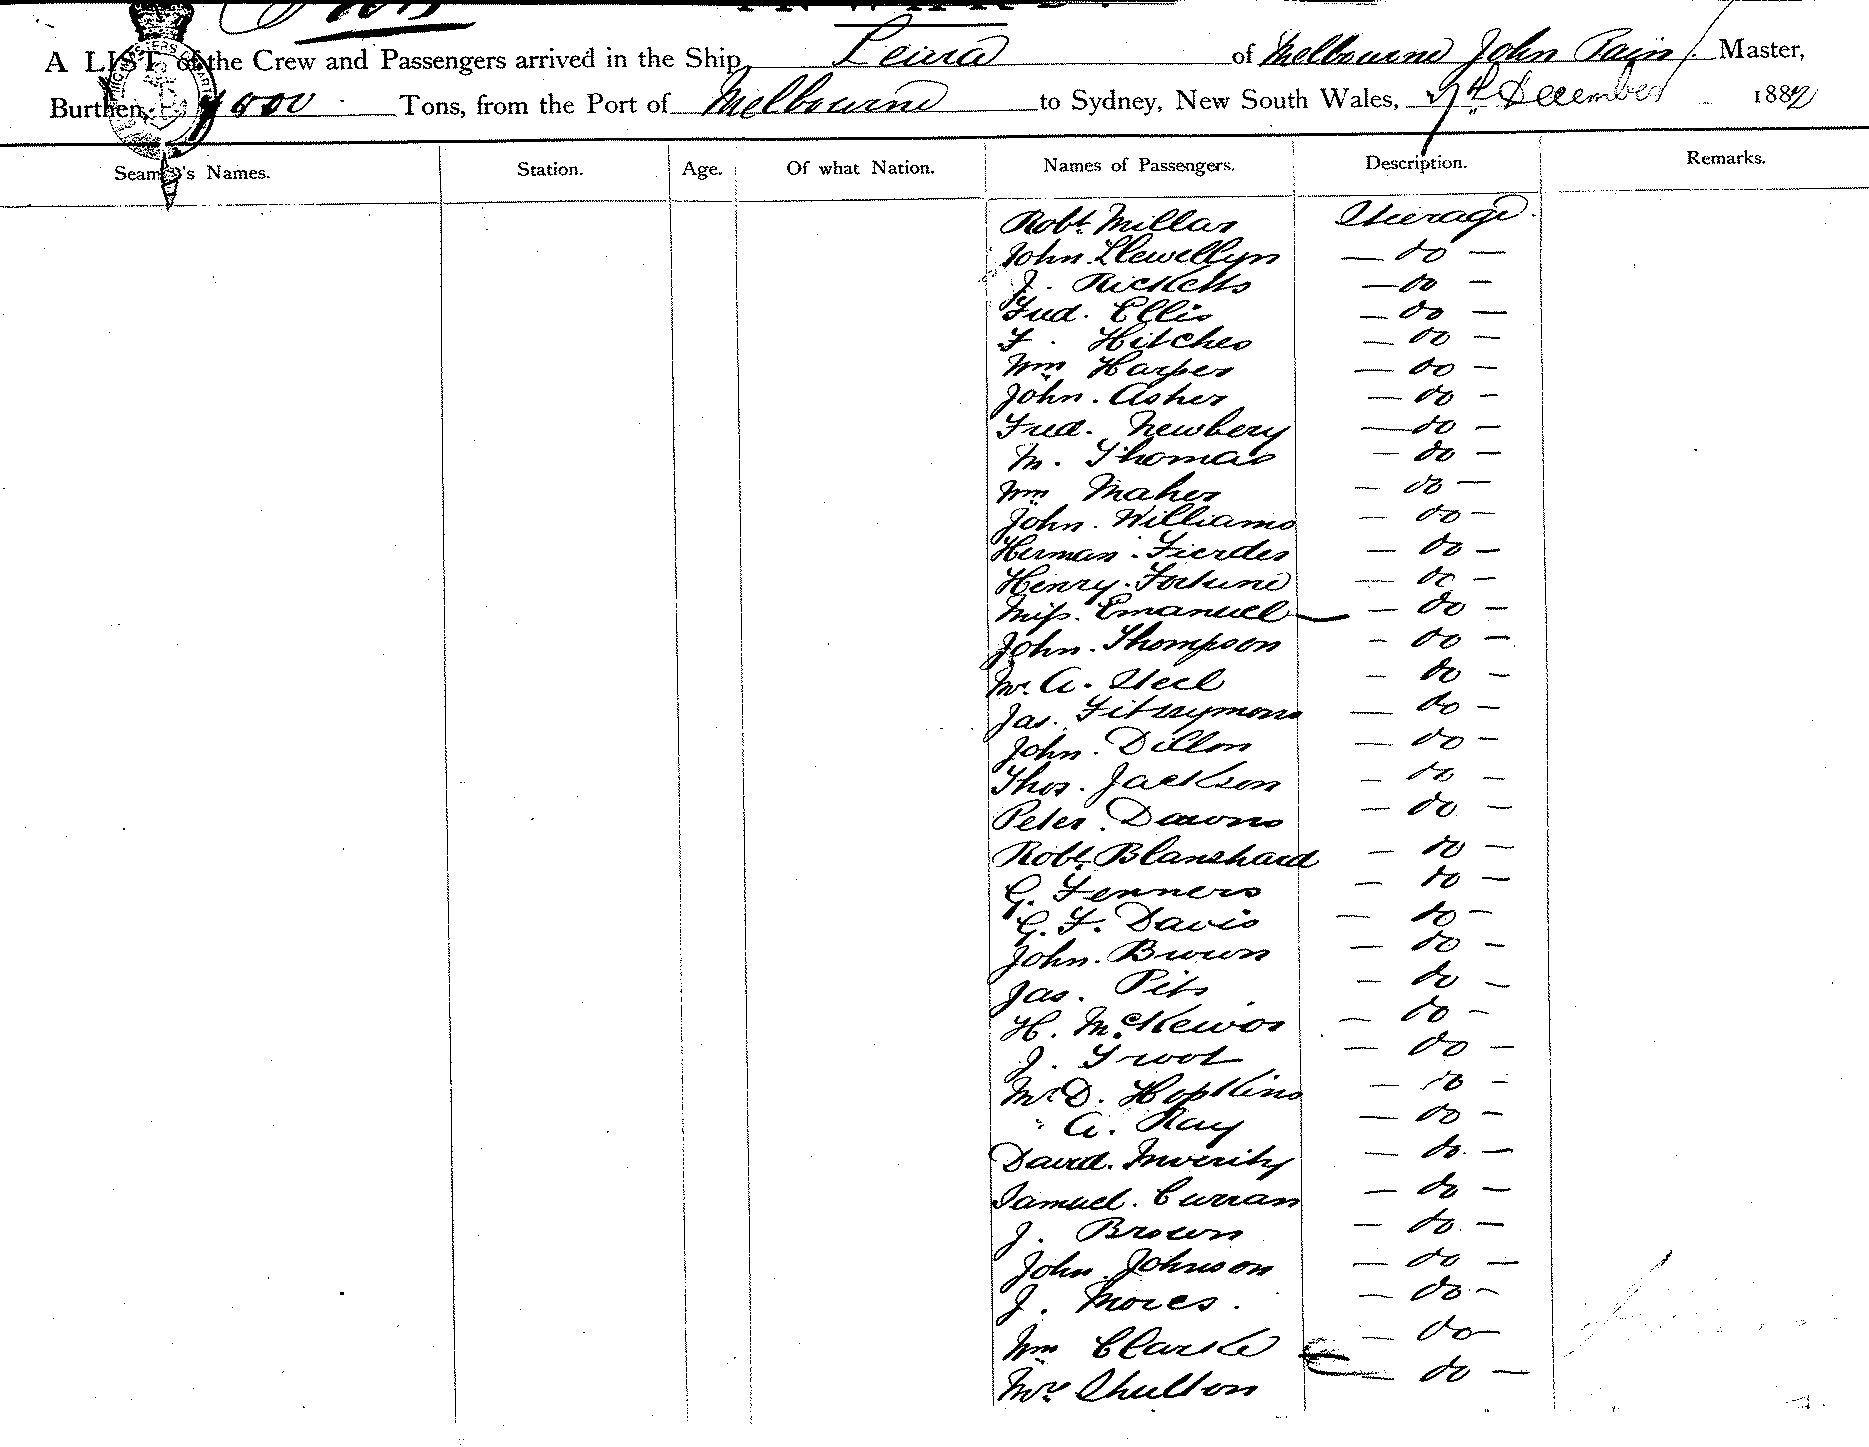 A LIST of the Crew and Passengers arrived in the Ship Leura of Melbourne John Pain Master,
Burthen, 1000 Tons, from the Port of Melbourne to Sydney, New South Wales, 7th December 1882
Seamen's Names. Station. Age. Of what Nation. Names of Passengers. Description. Remarks.
Robt. Millar Steerage
John Llewellyn — do —
J. Ricketts — do —
Fred. Ellis — do —
F. Hitches — do —
Wm Harper — do —
John. Asher — do —
Fred. Newbery — do —
M. Thomas — do —
Wm Maher — do —
John. Williams — do —
Herman. Fierdes — do —
Henry. Fortune — do —
Miss. Emanuel — do —
John. Thompson — do —
Mr. A. Steel — do —
Jas. Fitzsymons — do —
John. Dillon — do —
Thos. Jackson — do —
Peter. Downs — do —
Robt. Blanshard — do —
G. Fenners — do —
G. F. Davis — do —
John. Brown — do —
Jas. Pits — do —
H. McKewor — do —
J. Troot — do —
Mr D. Hopkins — do —
" A. Ray — do —
David. Inverity — do —
Samuel. Curran — do —
J. Brown — do —
John Johnson — do —
J. Mores. — do —
Wm Clarke — do —
Mr. Shulton — do —